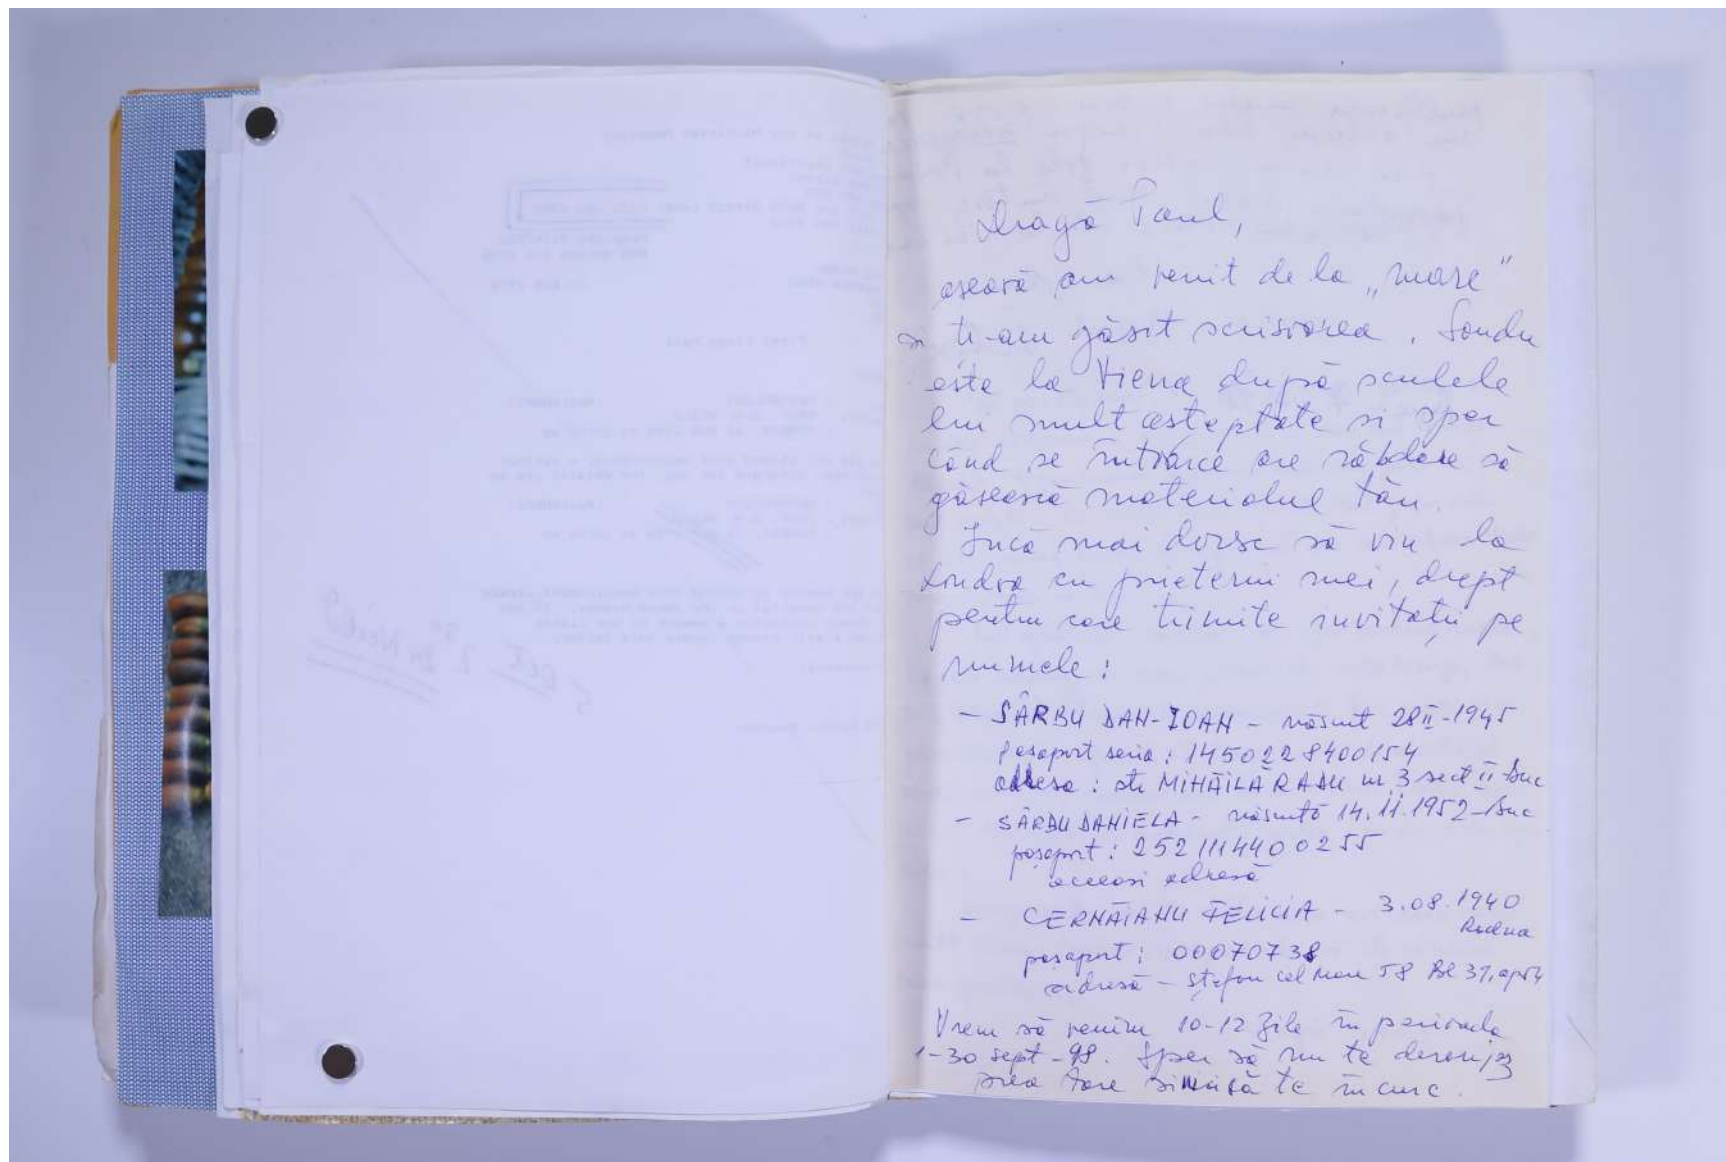 Dragă Paul,
aseară am venit de la „mare"
și ti-am găsit scrisiorea. Sandu
este la Viena după sculele
lui mult așteptate si sper
când se întoarce are răbdare să
găsească materialul tău.
Încă mai doresc să vin la
Londra cu prietenii mei, drept
pentru care trimite invitații pe
numele:
- SÂRBU DAN-IOAN - născut 28 II-1945
pașaport seria: 1450228400154
adresa: str MIHĂILĂ RADU nr 3 sect II-Buc
- SÂRBU DANIELA - născută 14.11.1952-Buc
pașaport: 2521114400255
aceeasi adresă
- CERNĂIANU FELICIA - 3.08.1940
Rodna
pașaport: 00070738
adresă - Ștefan cel Mare 58 Bl 31,
Vrem să venim 10-12 zile în perioada
1-30 sept-98. Sper să nu te deranjez
prea tare si să te încurc.